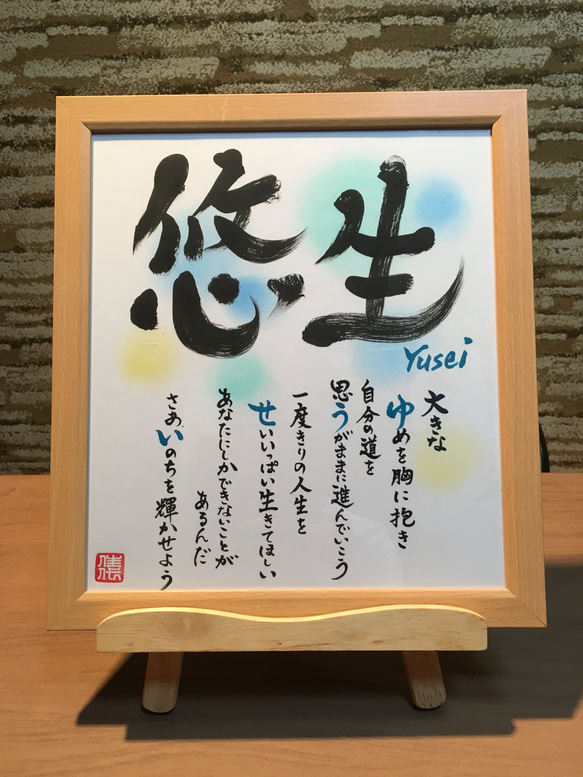 悠生
Yusei
大きな
ゆめを胸に抱き
自分の道を
思うがままに進んでいこう
一度きりの人生を
せいいっぱい生きてほしい
あなたにしかできないことが
あるんだ
さあ、いのちを輝かせよう